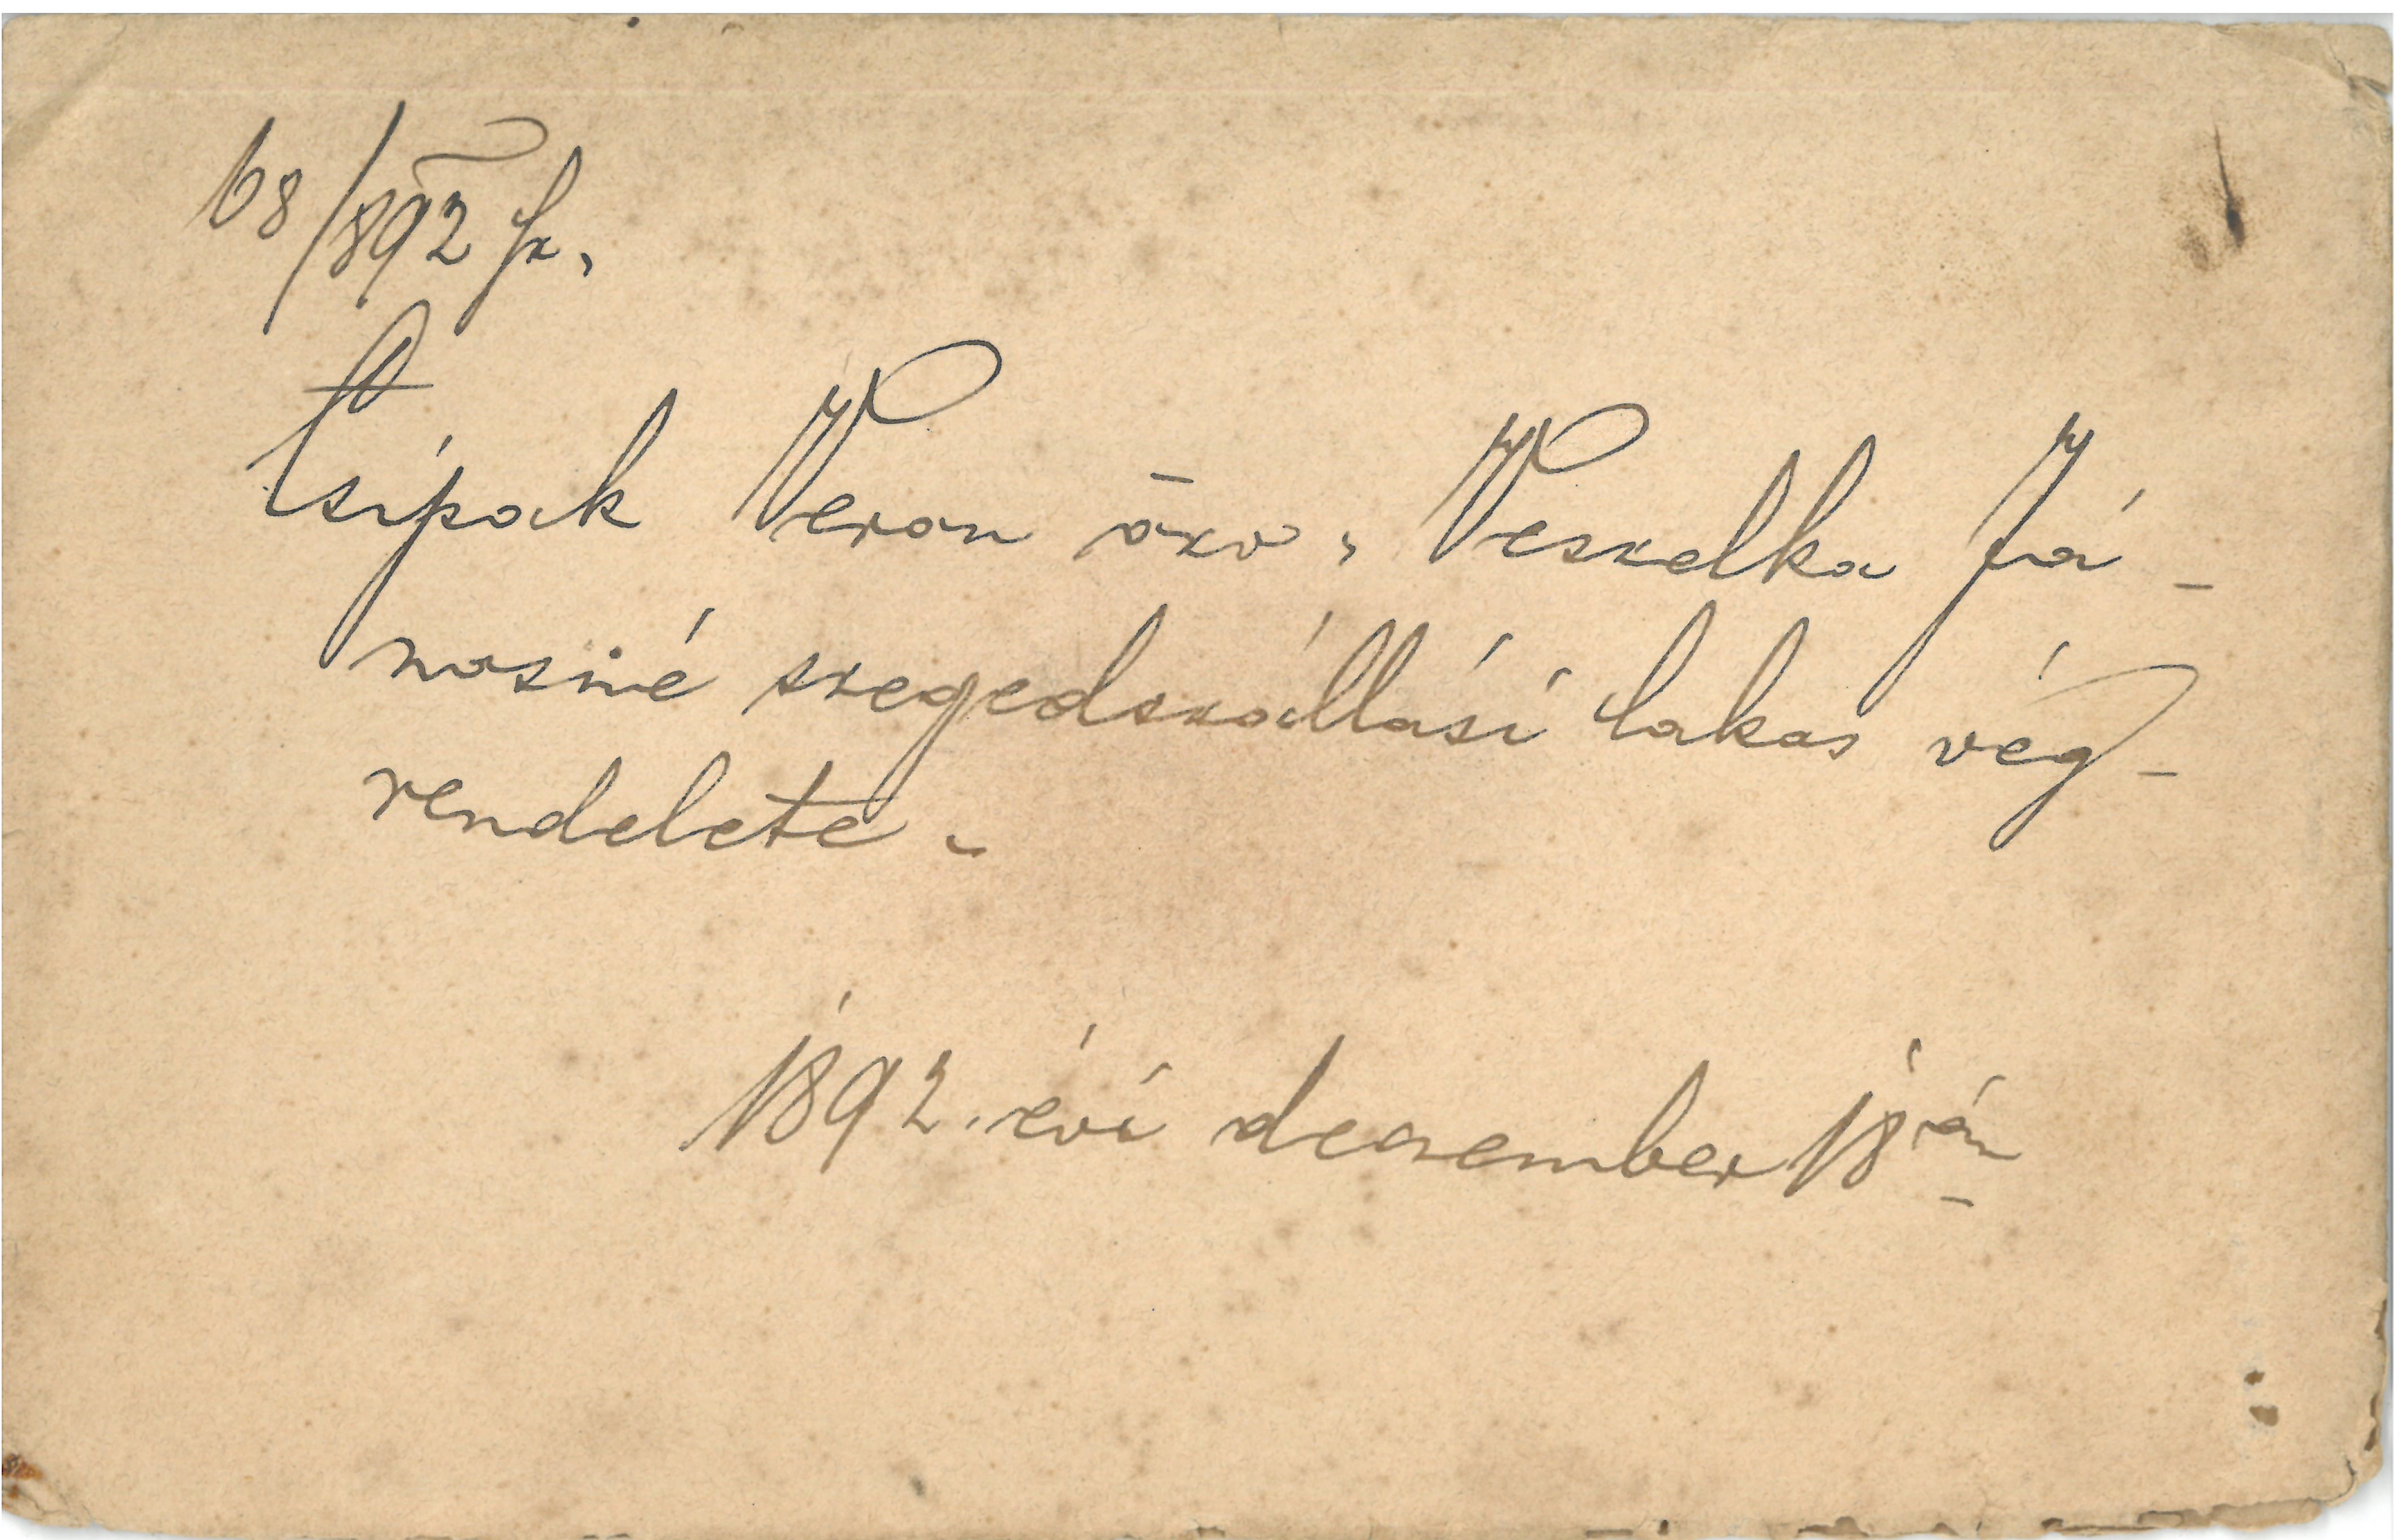 68/892 sz.
Tsipak Veron özv. Veszelka Já-
nosné szegedszállási lakos vég-
rendelete.
1892. évi deczember 18án